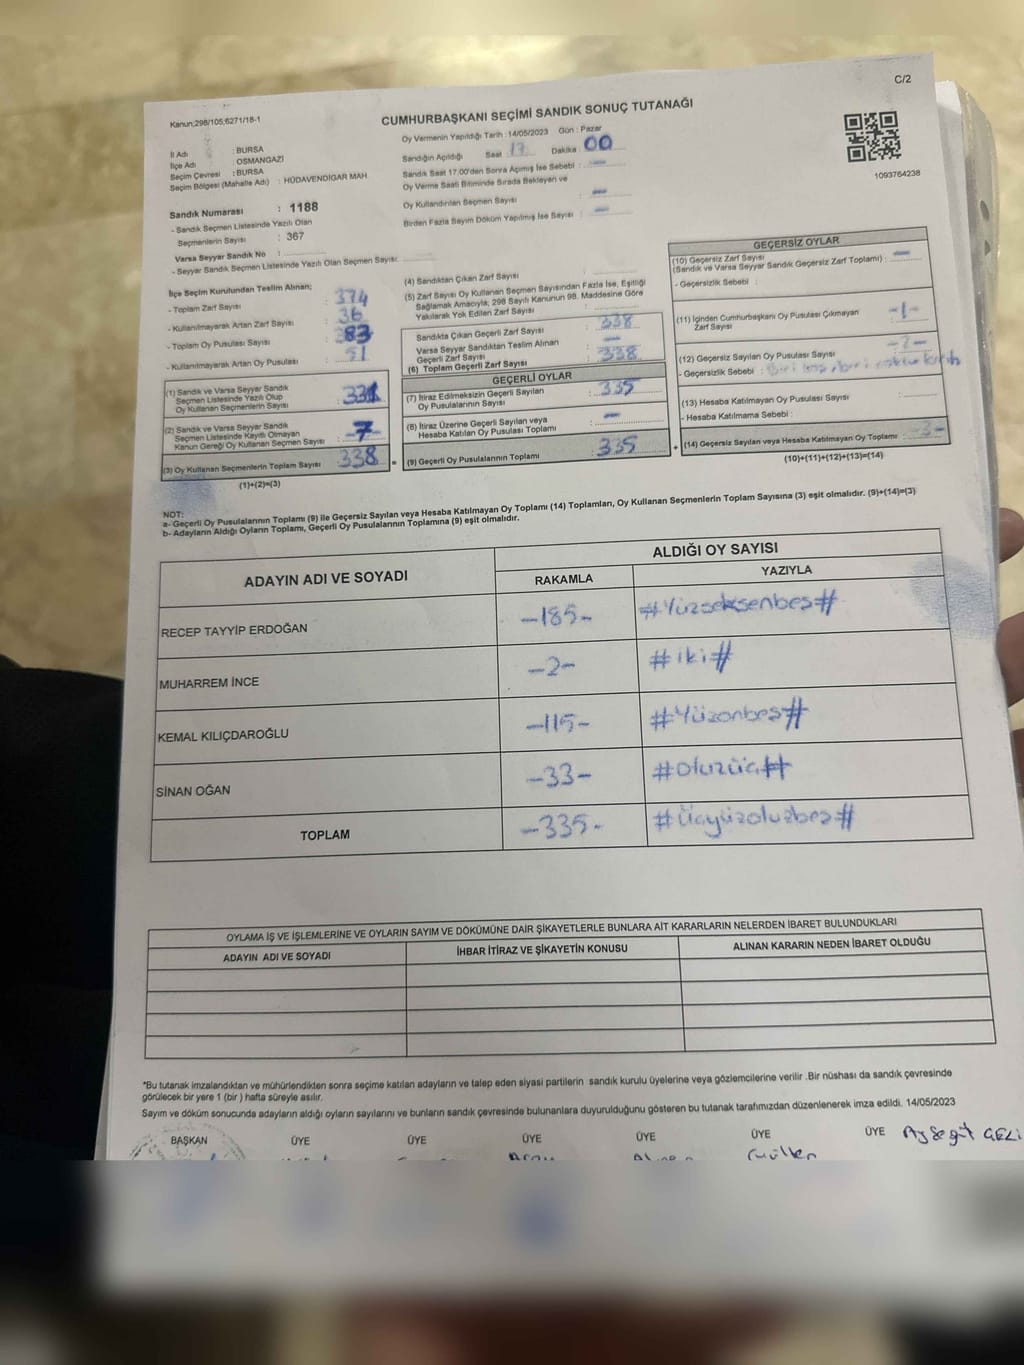 C/2
Kanun;298/105;6271/18-1
CUMHURBAŞKANI SEÇİMİ SANDIK SONUÇ TUTANAĞI
İl Adı : BURSA
İlçe Adı : OSMANGAZİ
Seçim Çevresi : BURSA
Seçim Bölgesi (Mahalle Adı) : HÜDAVENDİGAR MAH
Sandık Numarası : 1188
- Sandık Seçmen Listesinde Yazılı Olan
Seçmenlerin Sayısı : 367
Varsa Seyyar Sandık No :
- Seyyar Sandık Seçmen Listesinde Yazılı Olan Seçmen Sayısı:
Oy Vermenin Yapıldığı Tarih : 14/05/2023 Gün : Pazar
Sandığın Açıldığı Saat : 17 Dakika : 00
Sandık Saat 17.00'den Sonra Açılmış İse Sebebi : -
Oy Verme Saati Bitiminde Sırada Bekleyen ve
Oy Kullandırılan Seçmen Sayısı : -
Birden Fazla Sayım Döküm Yapılmış İse Sayısı : -
1093764238
İlçe Seçim Kurulundan Teslim Alınan;
- Toplam Zarf Sayısı : 374
- Kullanılmayarak Artan Zarf Sayısı : 36
- Toplam Oy Pusulası Sayısı : 383
- Kullanılmayarak Artan Oy Pusulası : 51
(1) Sandık ve Varsa Seyyar Sandık
Seçmen Listesinde Yazılı Olup
Oy Kullanan Seçmenlerin Sayısı : 331
(2) Sandık ve Varsa Seyyar Sandık
Seçmen Listesinde Kayıtlı Olmayan
Kanun Gereği Oy Kullanan Seçmen Sayısı : -7
(3) Oy Kullanan Seçmenlerin Toplam Sayısı : 338
(1)+(2)=(3)
(4) Sandıktan Çıkan Zarf Sayısı :
(5) Zarf Sayısı Oy Kullanan Seçmen Sayısından Fazla İse, Eşitliği
Sağlamak Amacıyla; 298 Sayılı Kanunun 98. Maddesine Göre
Yakılarak Yok Edilen Zarf Sayısı :
Sandıkta Çıkan Geçerli Zarf Sayısı : 338
Varsa Seyyar Sandıktan Teslim Alınan
Geçerli Zarf Sayısı : -
(6) Toplam Geçerli Zarf Sayısı : 338
GEÇERLİ OYLAR
(7) İtiraz Edilmeksizin Geçerli Sayılan
Oy Pusulalarının Sayısı : 335
(8) İtiraz Üzerine Geçerli Sayılan veya
Hesaba Katılan Oy Pusulası Toplamı : -
(9) Geçerli Oy Pusulalarının Toplamı : 335
GEÇERSİZ OYLAR
(10) Geçersiz Zarf Sayısı
(Sandık ve Varsa Seyyar Sandık Geçersiz Zarf Toplamı) : -
- Geçersizlik Sebebi :
(11) İçinden Cumhurbaşkanı Oy Pusulası Çıkmayan
Zarf Sayısı : -1-
(12) Geçersiz Sayılan Oy Pusulası Sayısı : -2-
- Geçersizlik Sebebi : Biri
(13) Hesaba Katılmayan Oy Pusulası Sayısı :
- Hesaba Katılmama Sebebi :
(14) Geçersiz Sayılan veya Hesaba Katılmayan Oy Toplamı : -3-
(10)+(11)+(12)+(13)=(14)
NOT:
a- Geçerli Oy Pusulalarının Toplamı (9) ile Geçersiz Sayılan veya Hesaba Katılmayan Oy Toplamı (14) Toplamları, Oy Kullanan Seçmenlerin Toplam Sayısına (3) eşit olmalıdır. (9)+(14)=(3)
b- Adayların Aldığı Oyların Toplamı, Geçerli Oy Pusulalarının Toplamına (9) eşit olmalıdır.
ADAYIN ADI VE SOYADI ALDIĞI OY SAYISI
RAKAMLA YAZIYLA
RECEP TAYYİP ERDOĞAN -185- #Yüzseksenbeş#
MUHARREM İNCE -2- #iki#
KEMAL KILIÇDAROĞLU -115- #Yüzonbeş#
SİNAN OĞAN -33- #otuzüç#
TOPLAM -335- #üçyüzotuzbeş#
OYLAMA İŞ VE İŞLEMLERİNE VE OYLARIN SAYIM VE DÖKÜMÜNE DAİR ŞİKAYETLERLE BUNLARA AİT KARARLARIN NELERDEN İBARET BULUNDUKLARI
ADAYIN ADI VE SOYADI İHBAR İTİRAZ VE ŞİKAYETİN KONUSU ALINAN KARARIN NEDEN İBARET OLDUĞU
*Bu tutanak imzalandıktan ve mühürlendikten sonra seçime katılan adayların ve talep eden siyasi partilerin sandık kurulu üyelerine veya gözlemcilerine verilir .Bir nüshası da sandık çevresinde
görülecek bir yere 1 (bir ) hafta süreyle asılır.
Sayım ve döküm sonucunda adayların aldığı oyların sayılarını ve bunların sandık çevresinde bulunanlara duyurulduğunu gösteren bu tutanak tarafımızdan düzenlenerek imza edildi. 14/05/2023
BAŞKAN ÜYE ÜYE ÜYE ÜYE ÜYE ÜYE Ayşegül GELİ